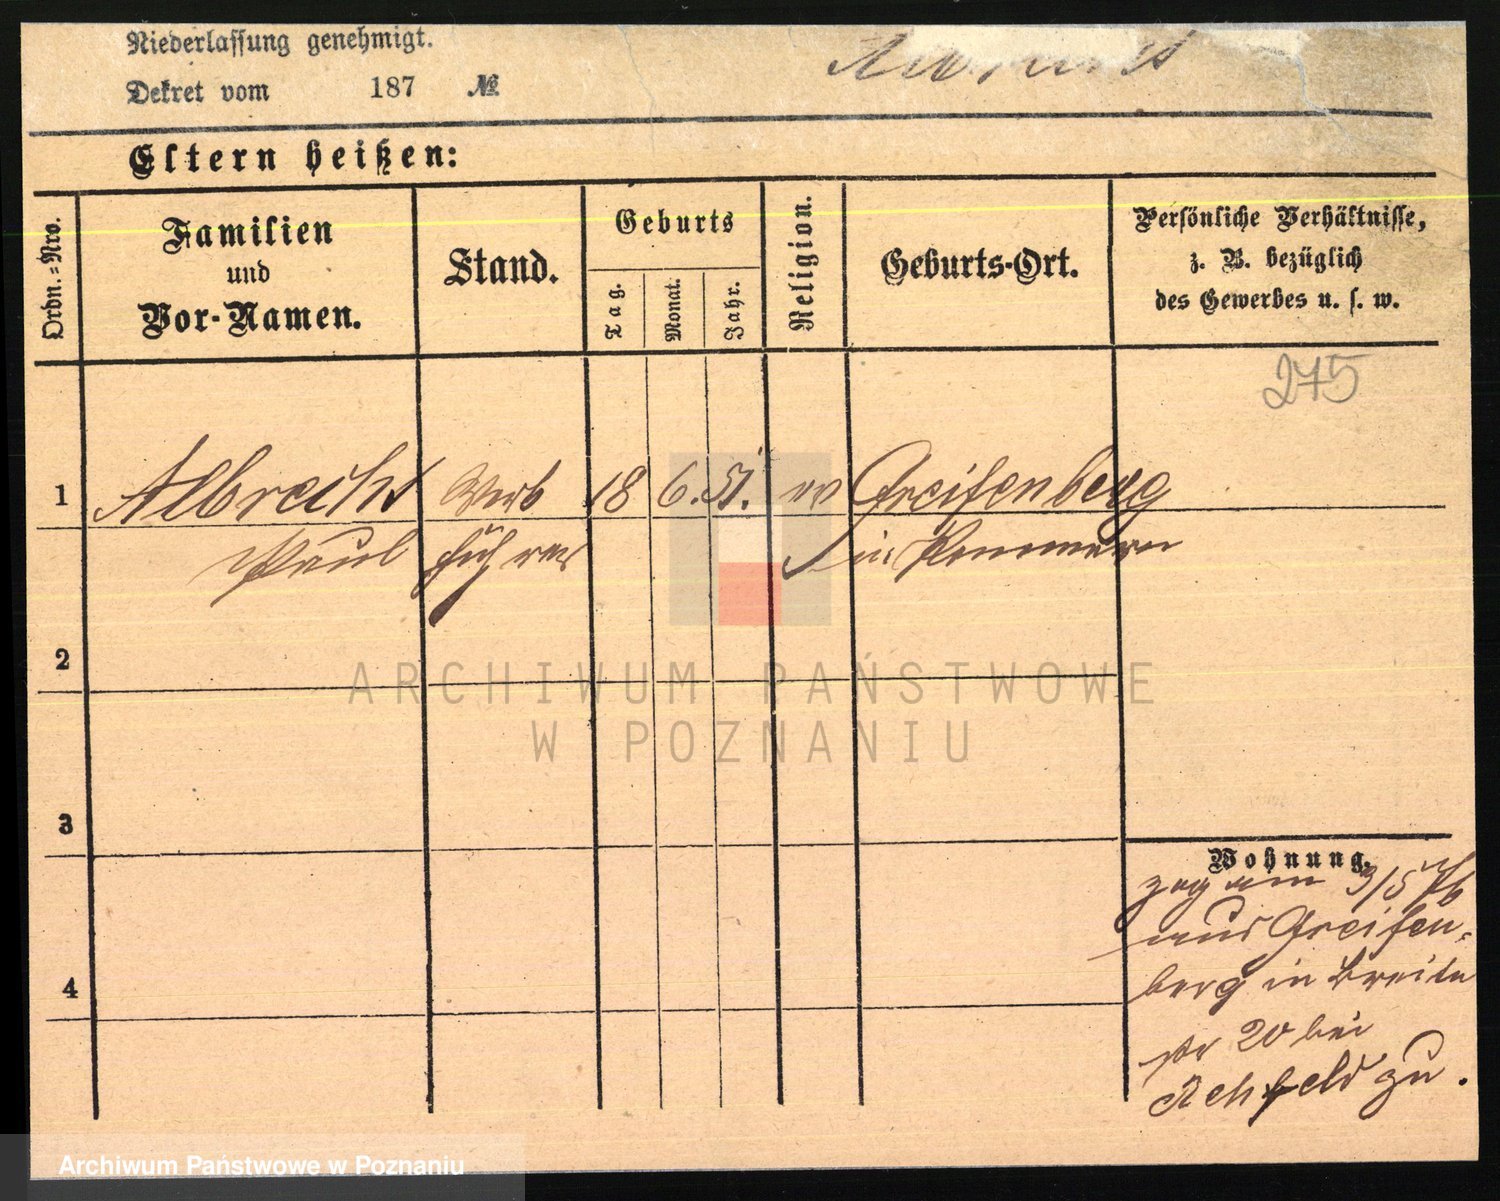 Niederlassung genehmigt.
Dekret vom 187 №
Eltern heißen:
Ordn.=Nro.
Familien
und
Vor-Namen.
Stand.
Geburts
Tag.
Monat.
Jahr.
Religion.
Geburts-Ort.
Persönliche Verhältnisse,
z. B. bezüglich
des Gewerbes u. s. w.
275
1 Albrecht Werk 18 6. 51. ev Greifenberg
Paul führer in Pommern
2
ARCHIWUM PAŃSTWOWE
W POZNANIU
3
Wohnung.
zog am 3/5 76
aus Greifen-
berg in Breite
str 20 bei
Rehfeld zu.
4
Archiwum Państwowe w Poznaniu